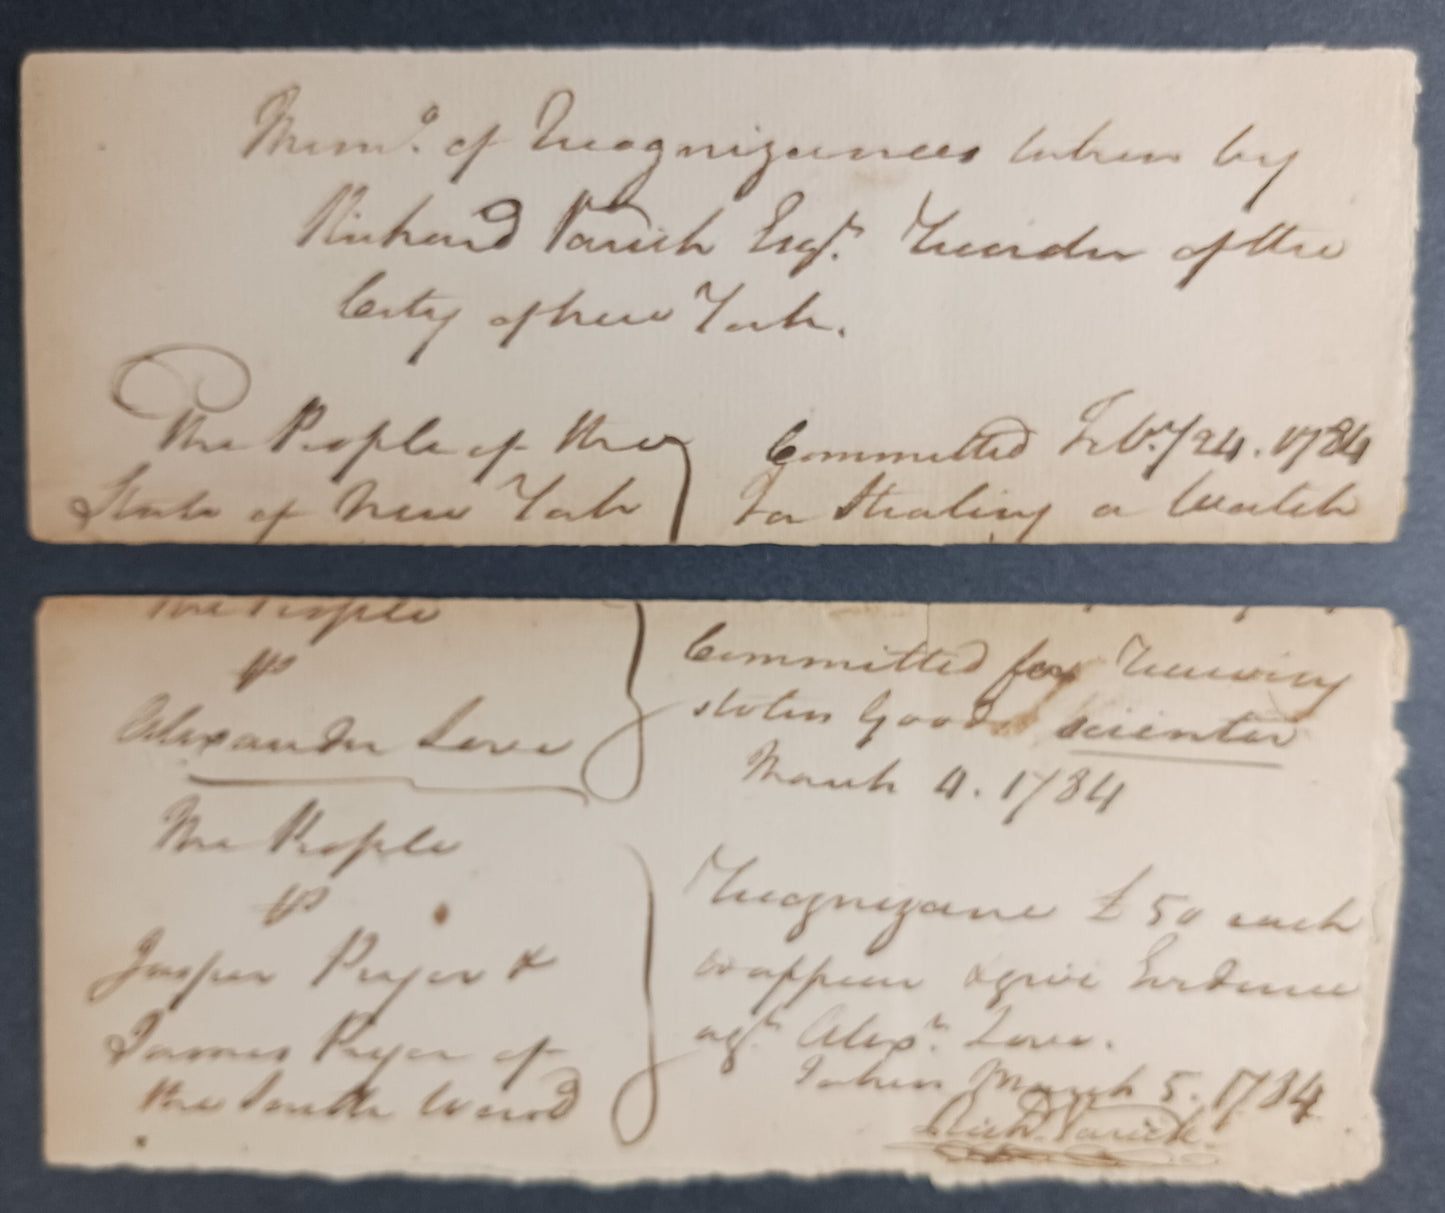 Memo. of Recognizances taken by
Richard Varick Esqr. Recorder of the
City of New York.
The People of the
State of New York
Committed Feby. 24. 1784
For Stealing a Watch
The People
vs
Alexander Love
Committed for Receiving
stolen Goods scienter
March 4. 1784
The People
vs
Jasper Pryer &
James Pryer of
the South Ward
Recognizance £50 each
to appear & give Evidence
agt. Alexr. Love.
Taken March 5. 1784
Richd. Varick